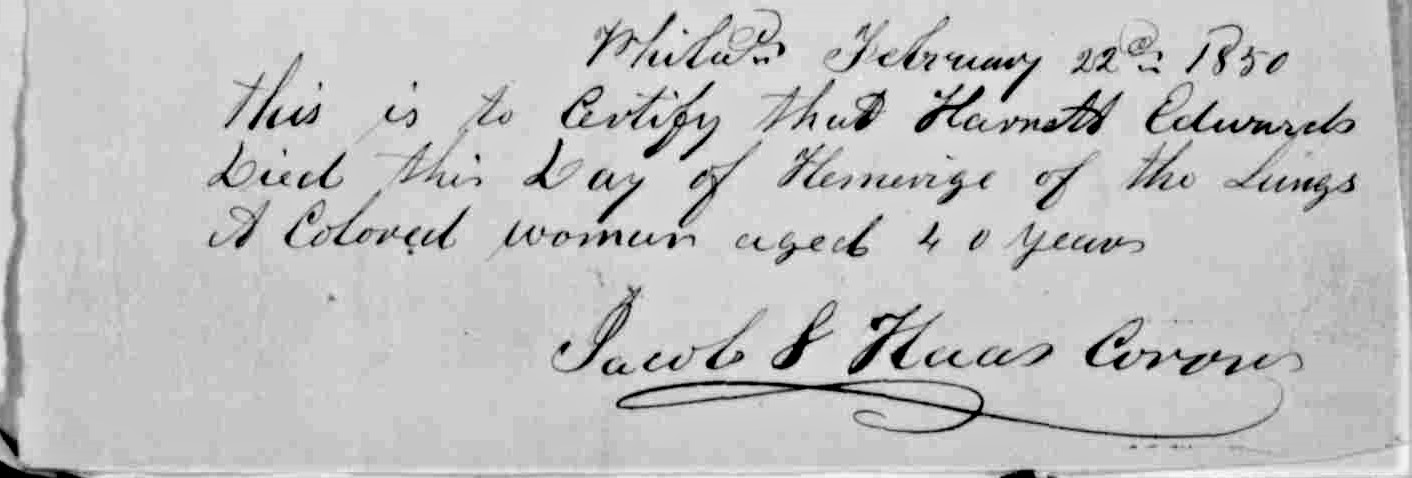 Philad February 22d 1850
This is to Certify that Harriett Edwards
Died this Day of Hemerige of the Lungs
A Colored woman aged 40 years
Jacob S Haas Coroner